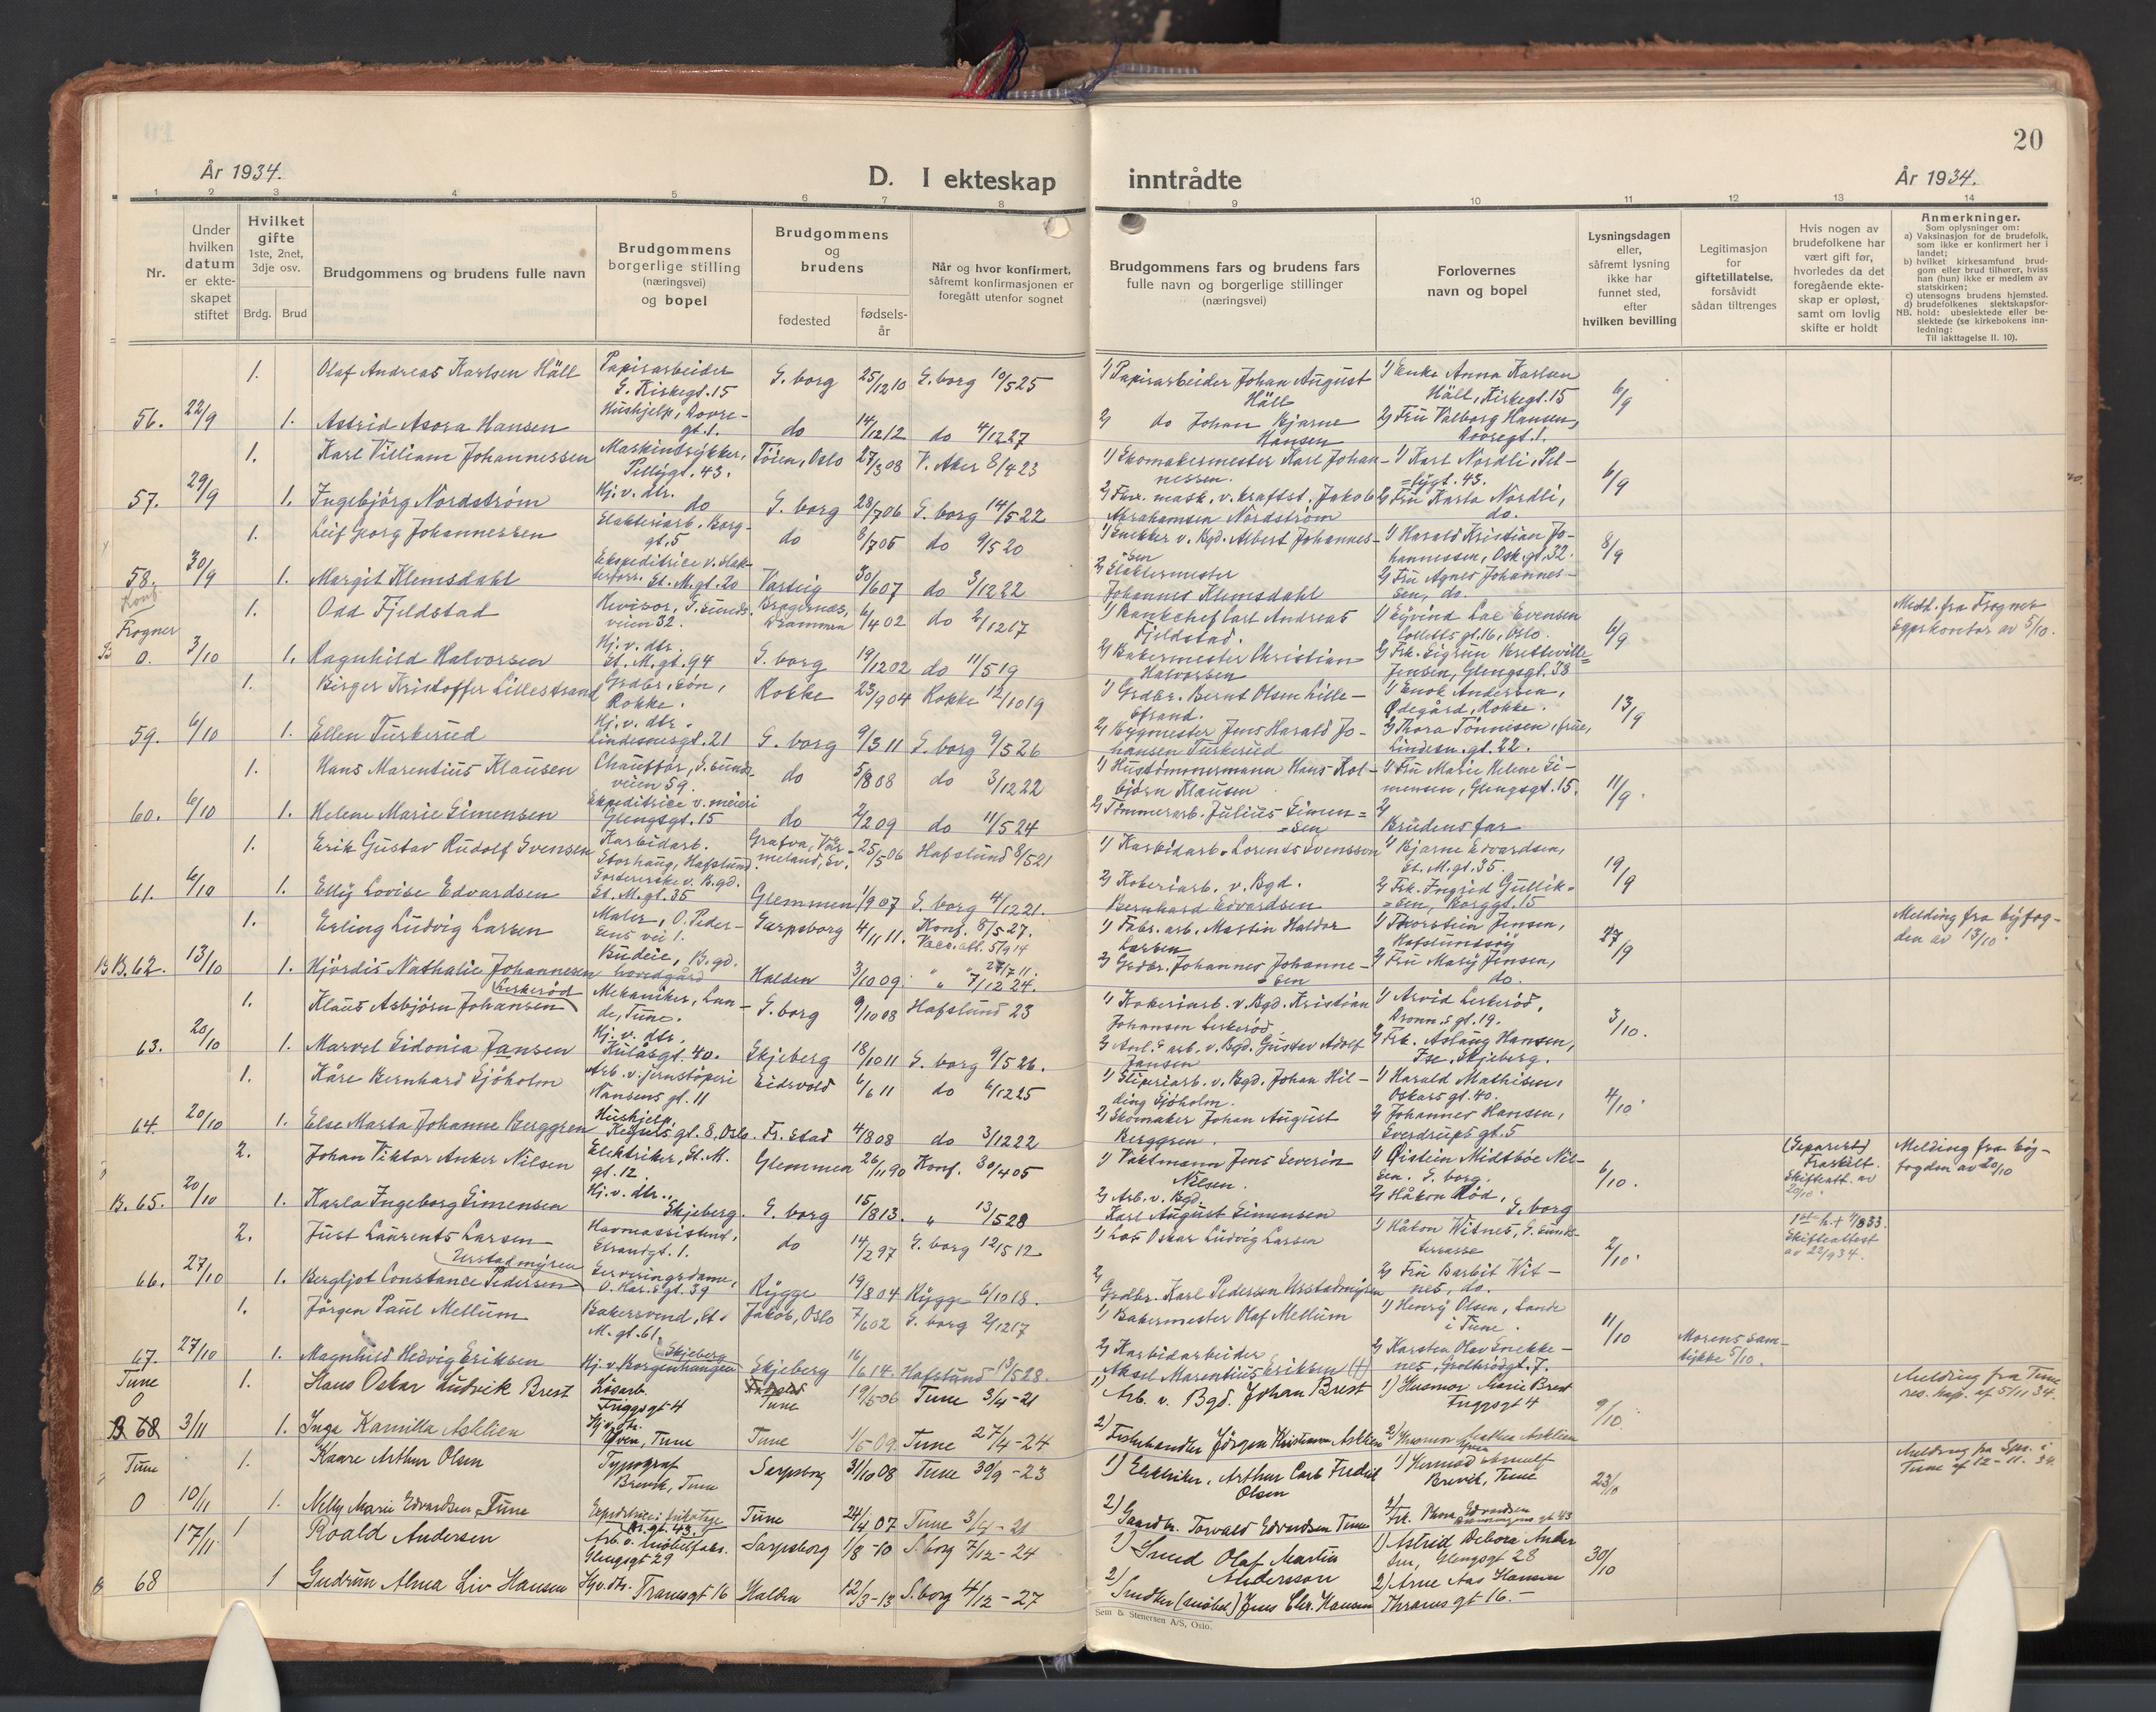 20
År 1934.
D. I ekteskap inntrådte
År 1934.
1 2 3 4 5 6 7 8 9 10 11 12 13 14
Nr.
Under hvilken datum er ekteskapet stiftet
Hvilket gifte
1ste, 2net, 3dje osv.
Brdg. Brud
Brudgommens og brudens fulle navn
Brudgommens borgerlige stilling (næringsvei) og bopel
Brudgommens og brudens
fødested
fødsels-år
Når og hvor konfirmert, såfremt konfirmasjonen er foregått utenfor sognet
Brudgommens fars og brudens fars fulle navn og borgerlige stillinger (næringsvei)
Forlovernes navn og bopel
Lysningsdagen eller, såfremt lysning ikke har funnet sted, efter hvilken bevilling
Legitimasjon for giftetillatelse, forsåvidt sådan tiltrenges
Hvis nogen av brudefolkene har vært gift før, hvorledes da det foregående ekteskap er opløst, samt om lovlig skifte er holdt
Anmerkninger.
Som oplysninger om:
a) Vaksinasjon for de brudefolk, som ikke er konfirmert her i landet;
b) hvilket kirkesamfund brudgom eller brud tilhører, hviss han (hun) ikke er medlem av statskirken;
c) utensogns brudens hjemsted.
d) brudefolkenes slektskapsforhold: ubeslektede eller beslektede (se kirkebokens innledning:
NB.
Til iakttagelse II. 10).
1. Olaf Andreas Karlsen Häll Papirarbeider S. Kirkegt. 15 S. borg 25/12 10 S. borg 10/5 25 1) Papirarbeider Johan August Häll 1) Enke Anna Karlsen Häll, Kirkegt. 15 6/9
56. 22/9 1. Astrid Asora Hansen Hushjelp, Dovregt. 1. do 14/12 12 do 4/12 27 2) do Johan Bjarne Hansen 2) Fru Valborg Hansen, Dovregt. 1.
1. Karl Villiam Johannessen Maskintrykker, Pellygt. 43. Töien, Oslo 27/3 08 V. Aker 8/4 23 1) Skomakermester Karl Johannessen. 1) Karl Nordli, Pellygt. 43. 6/9
57. 29/9 1. Ingebjörg Nordström Hj. v. dtr. do S. borg 28/7 06 S. borg 14/5 22 2) mask. v. kraftst. Jakob Abrahamsen Nordström 2) Fru Karla Nordli, do.
1. Leif Georg Johannessen Slakteriarb. Borggt. 5 do 8/7 05 do 9/5 20 1) Snekker v. Bgd. Albert Johannessen 1) Harald Kristian Johannessen, Osk. gt. 32. 8/9
58. 30/9 1. Margit Klemsdahl Ekspeditrice v. slakterforr. St. M. gt. 20 Varteig 30/6 07 do 3/12 22 2) Slaktermester Johannes Klemsdahl 2) Fru Agnes Johannessen, do.
Konf. Frogner
1. Odd Fjeldstad Revisor, S. Sundsveien 32. Bragernæs, Drammen 6/4 02 do 2/12 17 1) Bankchef Carl Andreas Fjeldstad. 1) Eyvind Lae Evensen Colletts gt. 16, Oslo. 6/9 Medd. fra Frogner Sgprskontor av 5/10.
O. 3/10 1. Ragnhild Halvorsen Hj. v. dtr. St. M. gt. 94 S. borg 19/12 02 do 11/5 19 2) Bakermester Christian Halvorsen 2) Frk. Sigrun Jensen, Glengsgt. 38
1. Birger Kristoffer Lillestrand Grdbr. sön, Rokke. Rokke 23/9 04 Rokke 12/10 19 1) Grdbr. Bernt Olsen Lillestrand. 1) Enok Andersen, Ødegård, Rokke. 13/9
59. 6/10 1. Ellen Turkerud Hj. v. dtr. Lindesnesgt. 21 S. borg 9/3 11 S. borg 9/5 26 2) Bygmester Jens Harald Johansen Turkerud 2) Thora Tönnisen, frue, Lindesn. gt. 22.
1. Hans Marentius Klausen Chauffør, S. Sundsveien 59. do 5/8 08 do 3/12 22 1) Hustömmermann Hans Kolbjörn Klausen 1) Fru Marie Helene Simensen, Glengsgt. 15. 11/9.
60. 6/10 1. Helene Marie Simensen Ekspeditrice v. meieri Glengsgt. 15 do 2/2 09 do 11/5 24 2) Tömmerarb. Julius Simensen 2) Brudens far
1. Erik Gustav Rudolf Svensen Karbidarb. Storhaug, Hafslund. Grafva, Värmeland, Sv. 25/5 06 Hafslund 8/5 21 1) Karbidarb. Lorents Svensson 1) Bjarne Edvardsen, St. M. gt. 35. 19/9
61. 6/10 1. Elly Lovise Edvardsen Sorbererske v. B.gd. St. M. gt. 35 Glemmen 1/9 07 S. borg 4/12 21. 2) Kokeriarb. v. Bgd. Bernhard Edvardsen 2) Frk. Ingrid Gulliksen, Borggt. 15
1. Erling Ludvig Larsen Maler, O. Pedersens vei 1. Sarpsborg 4/11 11. Konf. 8/5 27. Vacc. att. 5/9 14 1) Fabr. arb. Martin Haldor Larsen 1) Thorstein Jensen, Hafslundsøy 27/9 Melding fra byfogden av 13/10.
B. 62. 13/10 1. Hjördis Nathalie Johannesen Budeie, B.gd. hovedgård Halden 3/10 09. " 7/12 24. 2) Grdbr. Johannes Johannesen 2) Fru Mary Jensen, do.
1. Klaus Asbjörn Johansen Lerkeröd Mekaniker, Lande, Tune. S. borg 9/10 08 Hafslund 23 1) Kokeriarb. v. Bgd. Kristian Johansen Lerkeröd 1) Arvid Lerkeröd, Dronn.s gt. 19. 3/10.
63. 20/10 1. Marvel Sidonia Jansen Hj. v. dtr. Kulåsgt. 40. Skjeberg 18/10 11 S. borg 9/5 26. 2) Anl.s arb. v. Bgd. Gustav Adolf Jansen 2) Frk. Aslaug Hansen, Ise, Skjeberg.
1. Kåre Bernhard Sjöholm Arb. v. jernstöperi Nansens gt. 11 Eidsvold 6/6 11 do 6/12 25 1) Sliperiarb. v. Bgd. Johan Hilding Sjöholm. 1) Harald Mathisen, Oskars gt. 40. 4/10.
64. 20/10 1. Else Marta Johanne Berggren Hushjelp, gt. 8, Oslo. Fr. stad 4/8 08 do 3/12 22 2) Skomaker Johan August Berggren. 2) Johannes Hansen, Sverdrups gt. 5
2. Johan Viktor Anker Nilsen Elektriker, St. M. gt. 12. Glemmen 26/11 90 Konf. 30/4 05 1) Vaktmann Jens Severin Nilsen. 1) Øistein Midtböe Nilsen. S. borg. 6/10. (Separert) Fraskilt. Skifteatt. av 20/10. Melding fra byfogden av 20/10
B. 65. 20/10 1. Karla Ingeborg Simensen Hj. v. dtr., Skjeberg. S. borg 15/8 13. " 13/5 28 2) Arb. v. Bgd. Karl August Simensen 2) Håkon Röd, S. borg
2. Just Laurents Larsen Havneassistent, Strandgt. 1. do 14/2 97 S. borg 12/5 12 1) Los Oskar Ludvig Larsen 1) Håkon Witnes, S. Sundsterrasse 2/10. 1ste h. † 4/8 33. Skifteattest av 22/9 34.
66. 27/10 1. Bergljot Constance Pedersen Urstadmyren Serveringsdame, O. Har.s gt. 39 Rygge 19/8 04 Rygge 6/10 18. 2) Grdbr. Karl Pedersen Urstadmyren 2) Fru Barbit Witnes, do.
1. Jörgen Paul Mellum Bakersvend, St. M. gt. 61. Jakob, Oslo 7/6 02 S. borg 2/12 17 1) Bakermester Olaf Mellum 1) Henry Olsen, Lande i Tune. 11/10
67. 27/10 1. Magnhild Hedvig Eriksen Hj. v. Borgenhaugen Skjeberg Skjeberg 16/6 14. Hafslund 13/5 28. 2) Karbidarbeider Aksel Marentius Eriksen (†) 2) Karsten Olav Snekkenes, Grotterödgt. 7. Morens samtykke 5/10.
Tune 1. Hans Oskar Ludvik Brest Lösarb. Tuggsgt 4 Tune 19/5-06 Tune 3/4-21 1) Arb. v. Bgd. Johan Brest 1) Husmor Marie Brest Tuggsgt 4 9/10. Melding fra Tune res. kap. af 5/11 34.
O B 68 3/11 1. Inga Kamilla Asklien Hj. v. dtr. Tune Tune 1/5-09. Tune 27/4-24 2) Fiskehandler Jörgen Kristian Asklien 2) Husmor Mathea Asklien
Tune 1. Kaare Arthur Olsen Typograf Brevik, Tune Sarpsborg 31/10 08 Tune 30/9-23 1) Elektriker, Arthur Carl Fredrik Olsen 1) Brevik, Tune 23/10 Melding fra Spr. i Tune af 12-11. 34.
O 10/11 1. Nelly Marie Edvardsen, Tune gt. 43. Tune 24/4 07 Tune 3/4-21 2) Gaardbr. Torvald Edvardsen Tune 2) Frk. Edvardsen gt 43
17/11 1 Roald Andersen Arb. v. Möbelfabr. Glengsgt 29 Sarpsborg 1/8-10 S. borg 7/12-24 1) Smed Olaf Martin Andersson 1) Astrid Debora Andersen, Glengsgt 28 30/10
68 1 Gudrun Alma Liv Hansen Hjv. dtr. Tranesgt 16 Halden 12/3-13 S. borg 4/12-27 2) Snedker (möbel) Jens Chr. Hansen 2) Arne Aas Hansen Thranes gt 16.-
Sem & Stenersen A/S, Oslo.